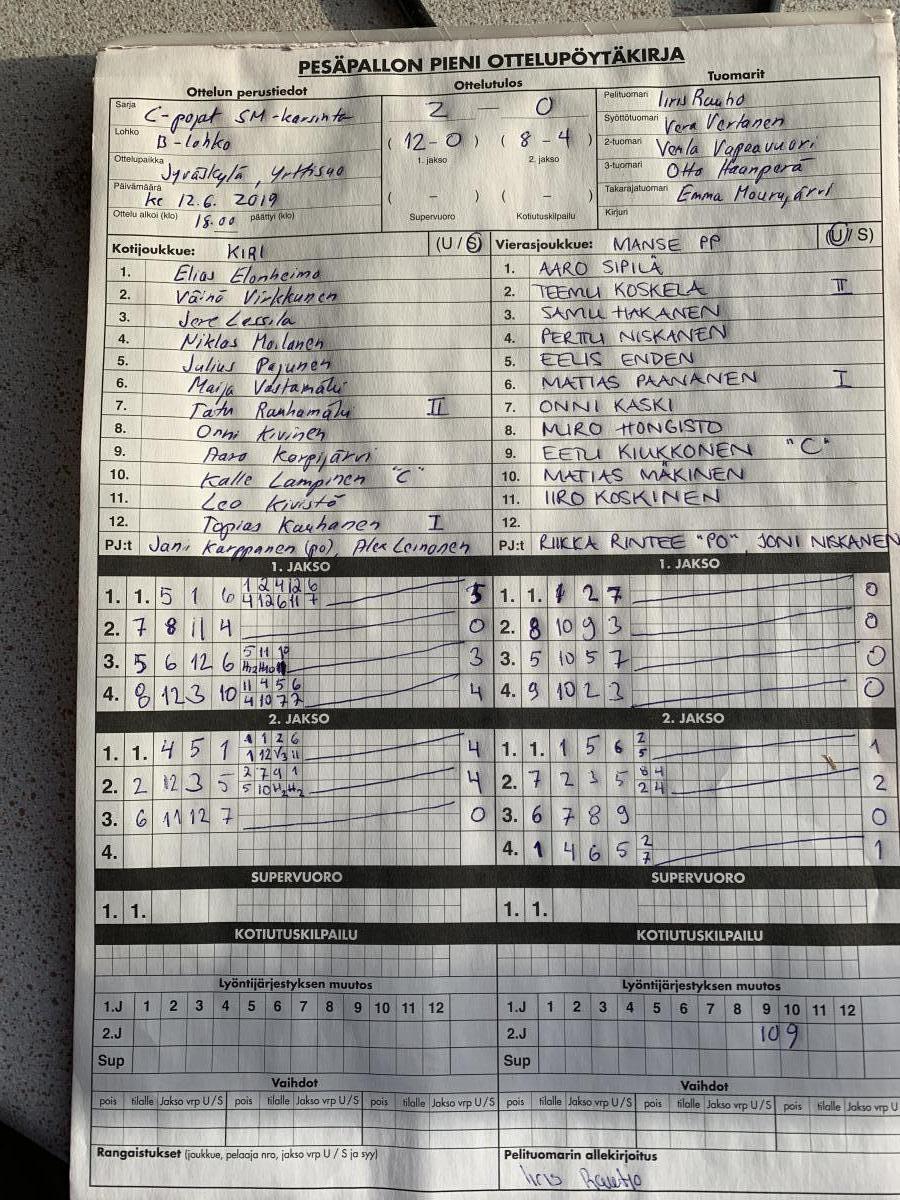 PESÄPALLON PIENI OTTELUPÖYTÄKIRJA
Ottelun perustiedot
Sarja C-pojat SM-karsinta
Lohko B-lohko
Ottelupaikka Jyväskylä, Yrttisuo
Päivämäärä ke 12.6. 2019
Ottelu alkoi (klo) 18.00 päättyi (klo)
Ottelutulos
2 – 0
( 12-0 ) ( 8-4 )
1. jakso 2. jakso
( - ) ( - )
Supervuoro Kotiutuskilpailu
Tuomarit
Pelituomari Iiris Rauho
Syöttötuomari Vera Vertanen
2-tuomari Venla Vapaavuori
3-tuomari Otto Haanperä
Takarajatuomari Emma Mourujärvi
Kirjuri
Kotijoukkue: KIRI (U / S)
1. Elias Elonheimo
2. Väinö Virkkunen
3. Jere Lassila
4. Niklas Moilanen
5. Julius Pajunen
6. Maija Vastamäki
7. Tatu Rauhamäki II
8. Onni Kivinen
9. Aaro Korpijärvi
10. Kalle Lampinen "C"
11. Leo Kivistö
12. Topias Kauhanen I
PJ:t Jani Karppanen (po), Alex Leinonen
Vierasjoukkue: MANSE PP (U / S)
1. AARO SIPILÄ
2. TEEMU KOSKELA II
3. SAMU HAKANEN
4. PERTTU NISKANEN
5. EELIS ENDEN
6. MATIAS PAANANEN I
7. ONNI KASKI
8. MIRO HONGISTO
9. EETU KIUKKONEN "C"
10. MATIAS MÄKINEN
11. IIRO KOSKINEN
12.
PJ:t RIIKKA RINTEE "PO", JONI NISKANEN
1. JAKSO
1. 1. 5 1 6 1 2 4 12 6 5
4 12 6 11 7
2. 7 8 11 4 0
3. 5 6 12 6 5 11 10 3
4. 8 12 3 10 11 4 5 6 4
4 10 7 7
1. JAKSO
1. 1. 1 2 7 0
2. 8 10 9 3 0
3. 5 10 5 7 0
4. 9 10 2 3 0
2. JAKSO
1. 1. 4 5 1 1 1 2 6 4
1 12 V3 11
2. 2 12 3 5 2 7 9 1 4
5 10 H2 H2
3. 6 11 12 7 0
4.
2. JAKSO
1. 1. 1 5 6 2 1
5
2. 7 2 3 5 8 4 2
2 4
3. 6 7 8 9 0
4. 1 4 6 5 2 1
7
SUPERVUORO
1. 1.
SUPERVUORO
1. 1.
KOTIUTUSKILPAILU
KOTIUTUSKILPAILU
Lyöntijärjestyksen muutos
1.J 1 2 3 4 5 6 7 8 9 10 11 12
2.J
Sup
Lyöntijärjestyksen muutos
1.J 1 2 3 4 5 6 7 8 9 10 11 12
2.J 10 9
Sup
Vaihdot
pois tilalle Jakso vrp U / S pois tilalle Jakso vrp U / S pois tilalle Jakso vrp U / S
Vaihdot
pois tilalle Jakso vrp U / S pois tilalle Jakso vrp U / S pois tilalle Jakso vrp U
Rangaistukset (joukkue, pelaaja nro, jakso vrp U / S ja syy)
Pelituomarin allekirjoitus
Iiris Rautjo